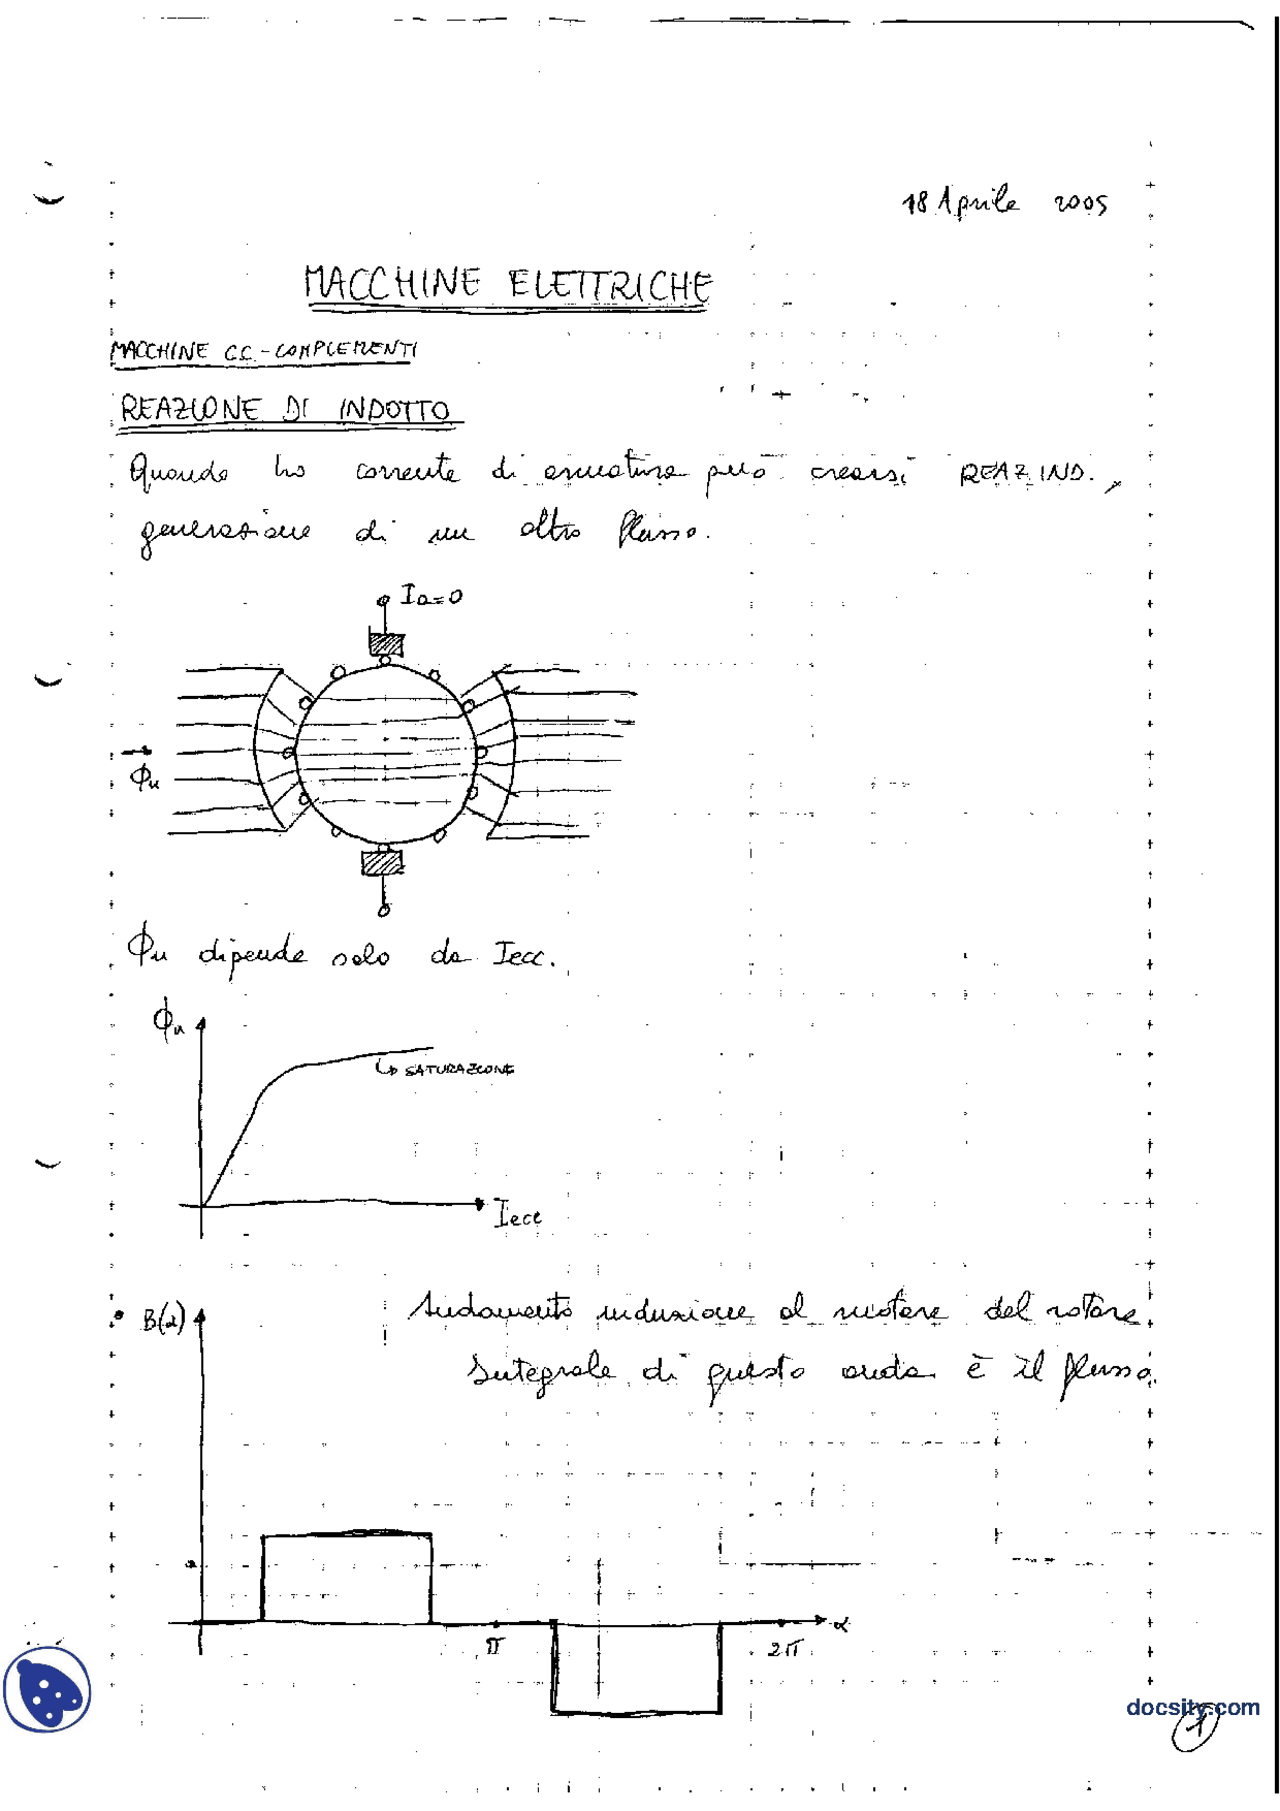 18 Aprile 2005
MACCHINE ELETTRICHE
MACCHINE C.C. - COMPLEMENTI
REAZIONE DI INDOTTO
Quando ho corrente di armatura può crearsi REAZ. IND.,
generazione di un altro flusso.
Ia=0
Φu
Φu dipende solo da Iecc.
Φu
↳ SATURAZIONE
Iecc
• B(α)
Andamento induzione al ruotare del rotore.
Integrale di questa onda è il flusso.
π
2π
α
docsity.com
1